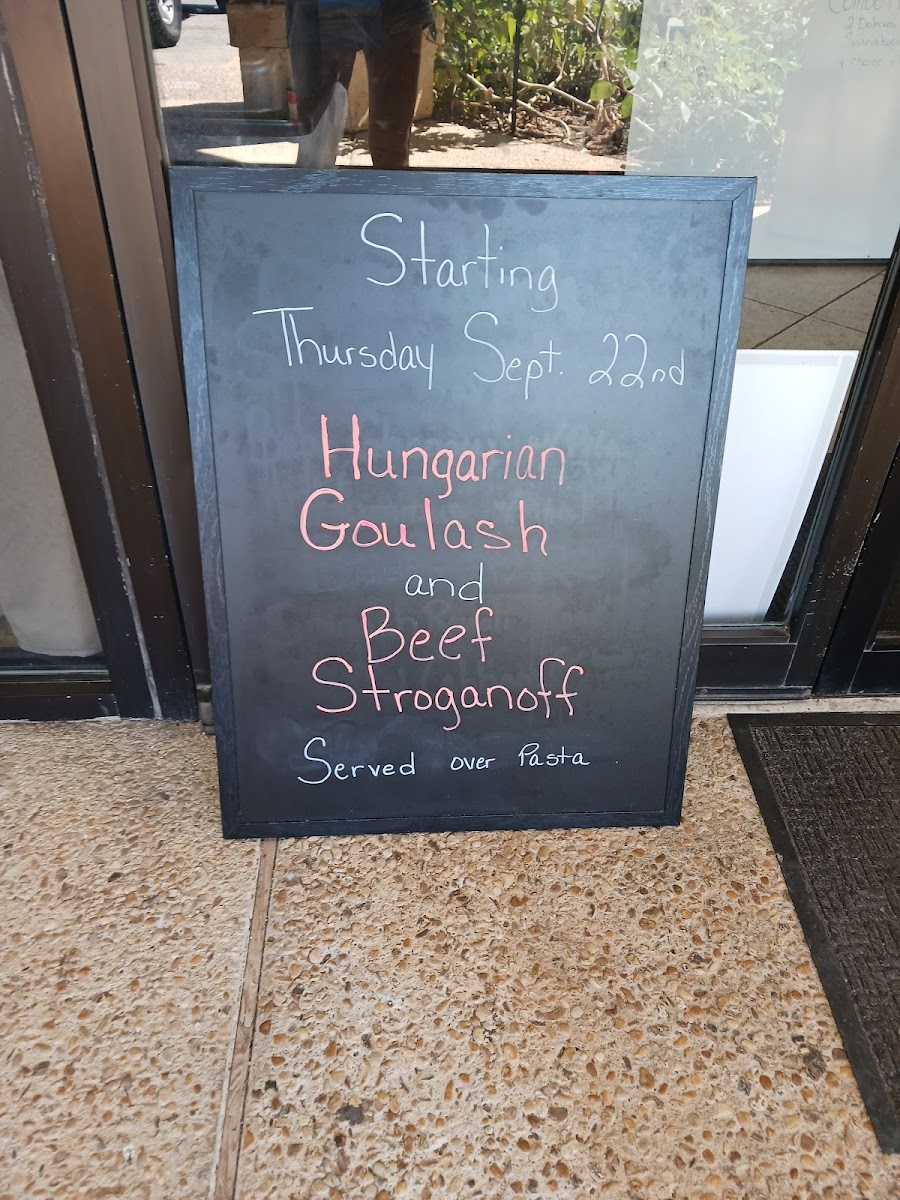 Starting
Thursday Sept. 22nd
Hungarian
Goulash
and
Beef
Stroganoff
Served over Pasta
2 Dolmas